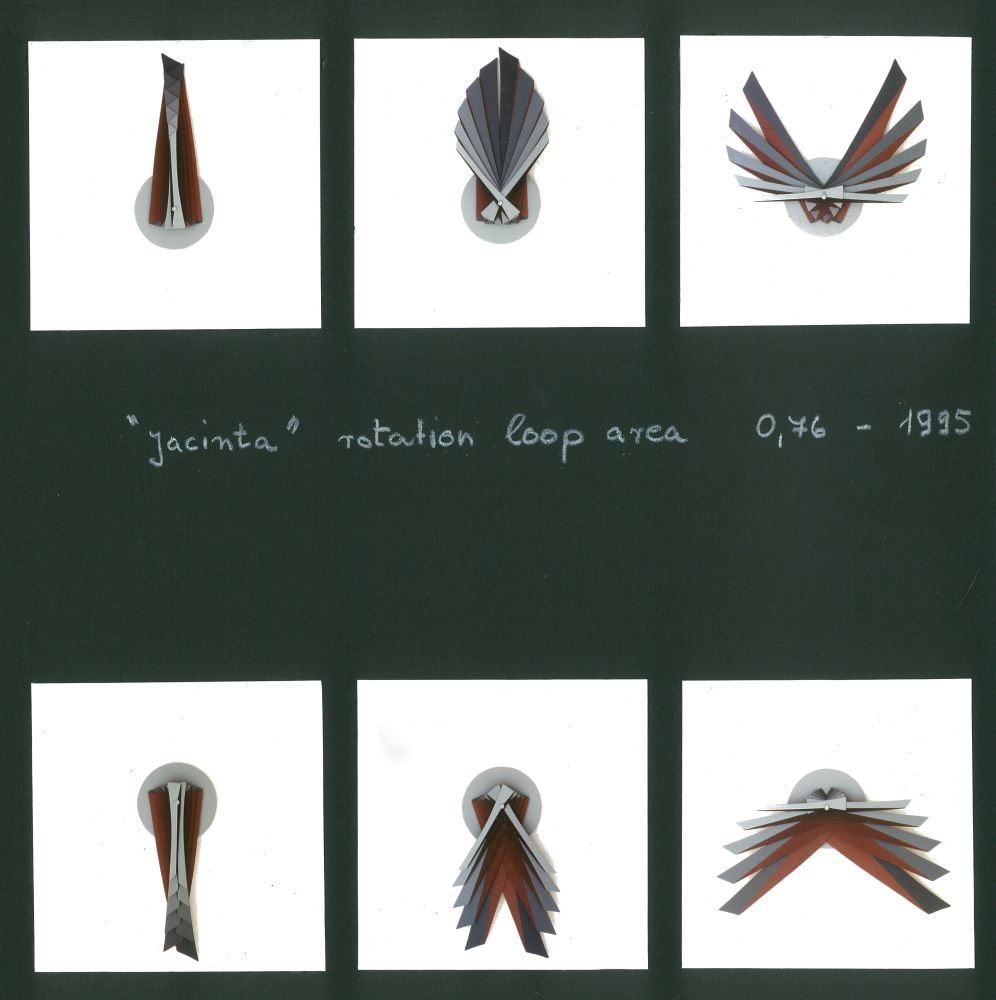 "Jacinta" rotation loop area 0,76 - 1995